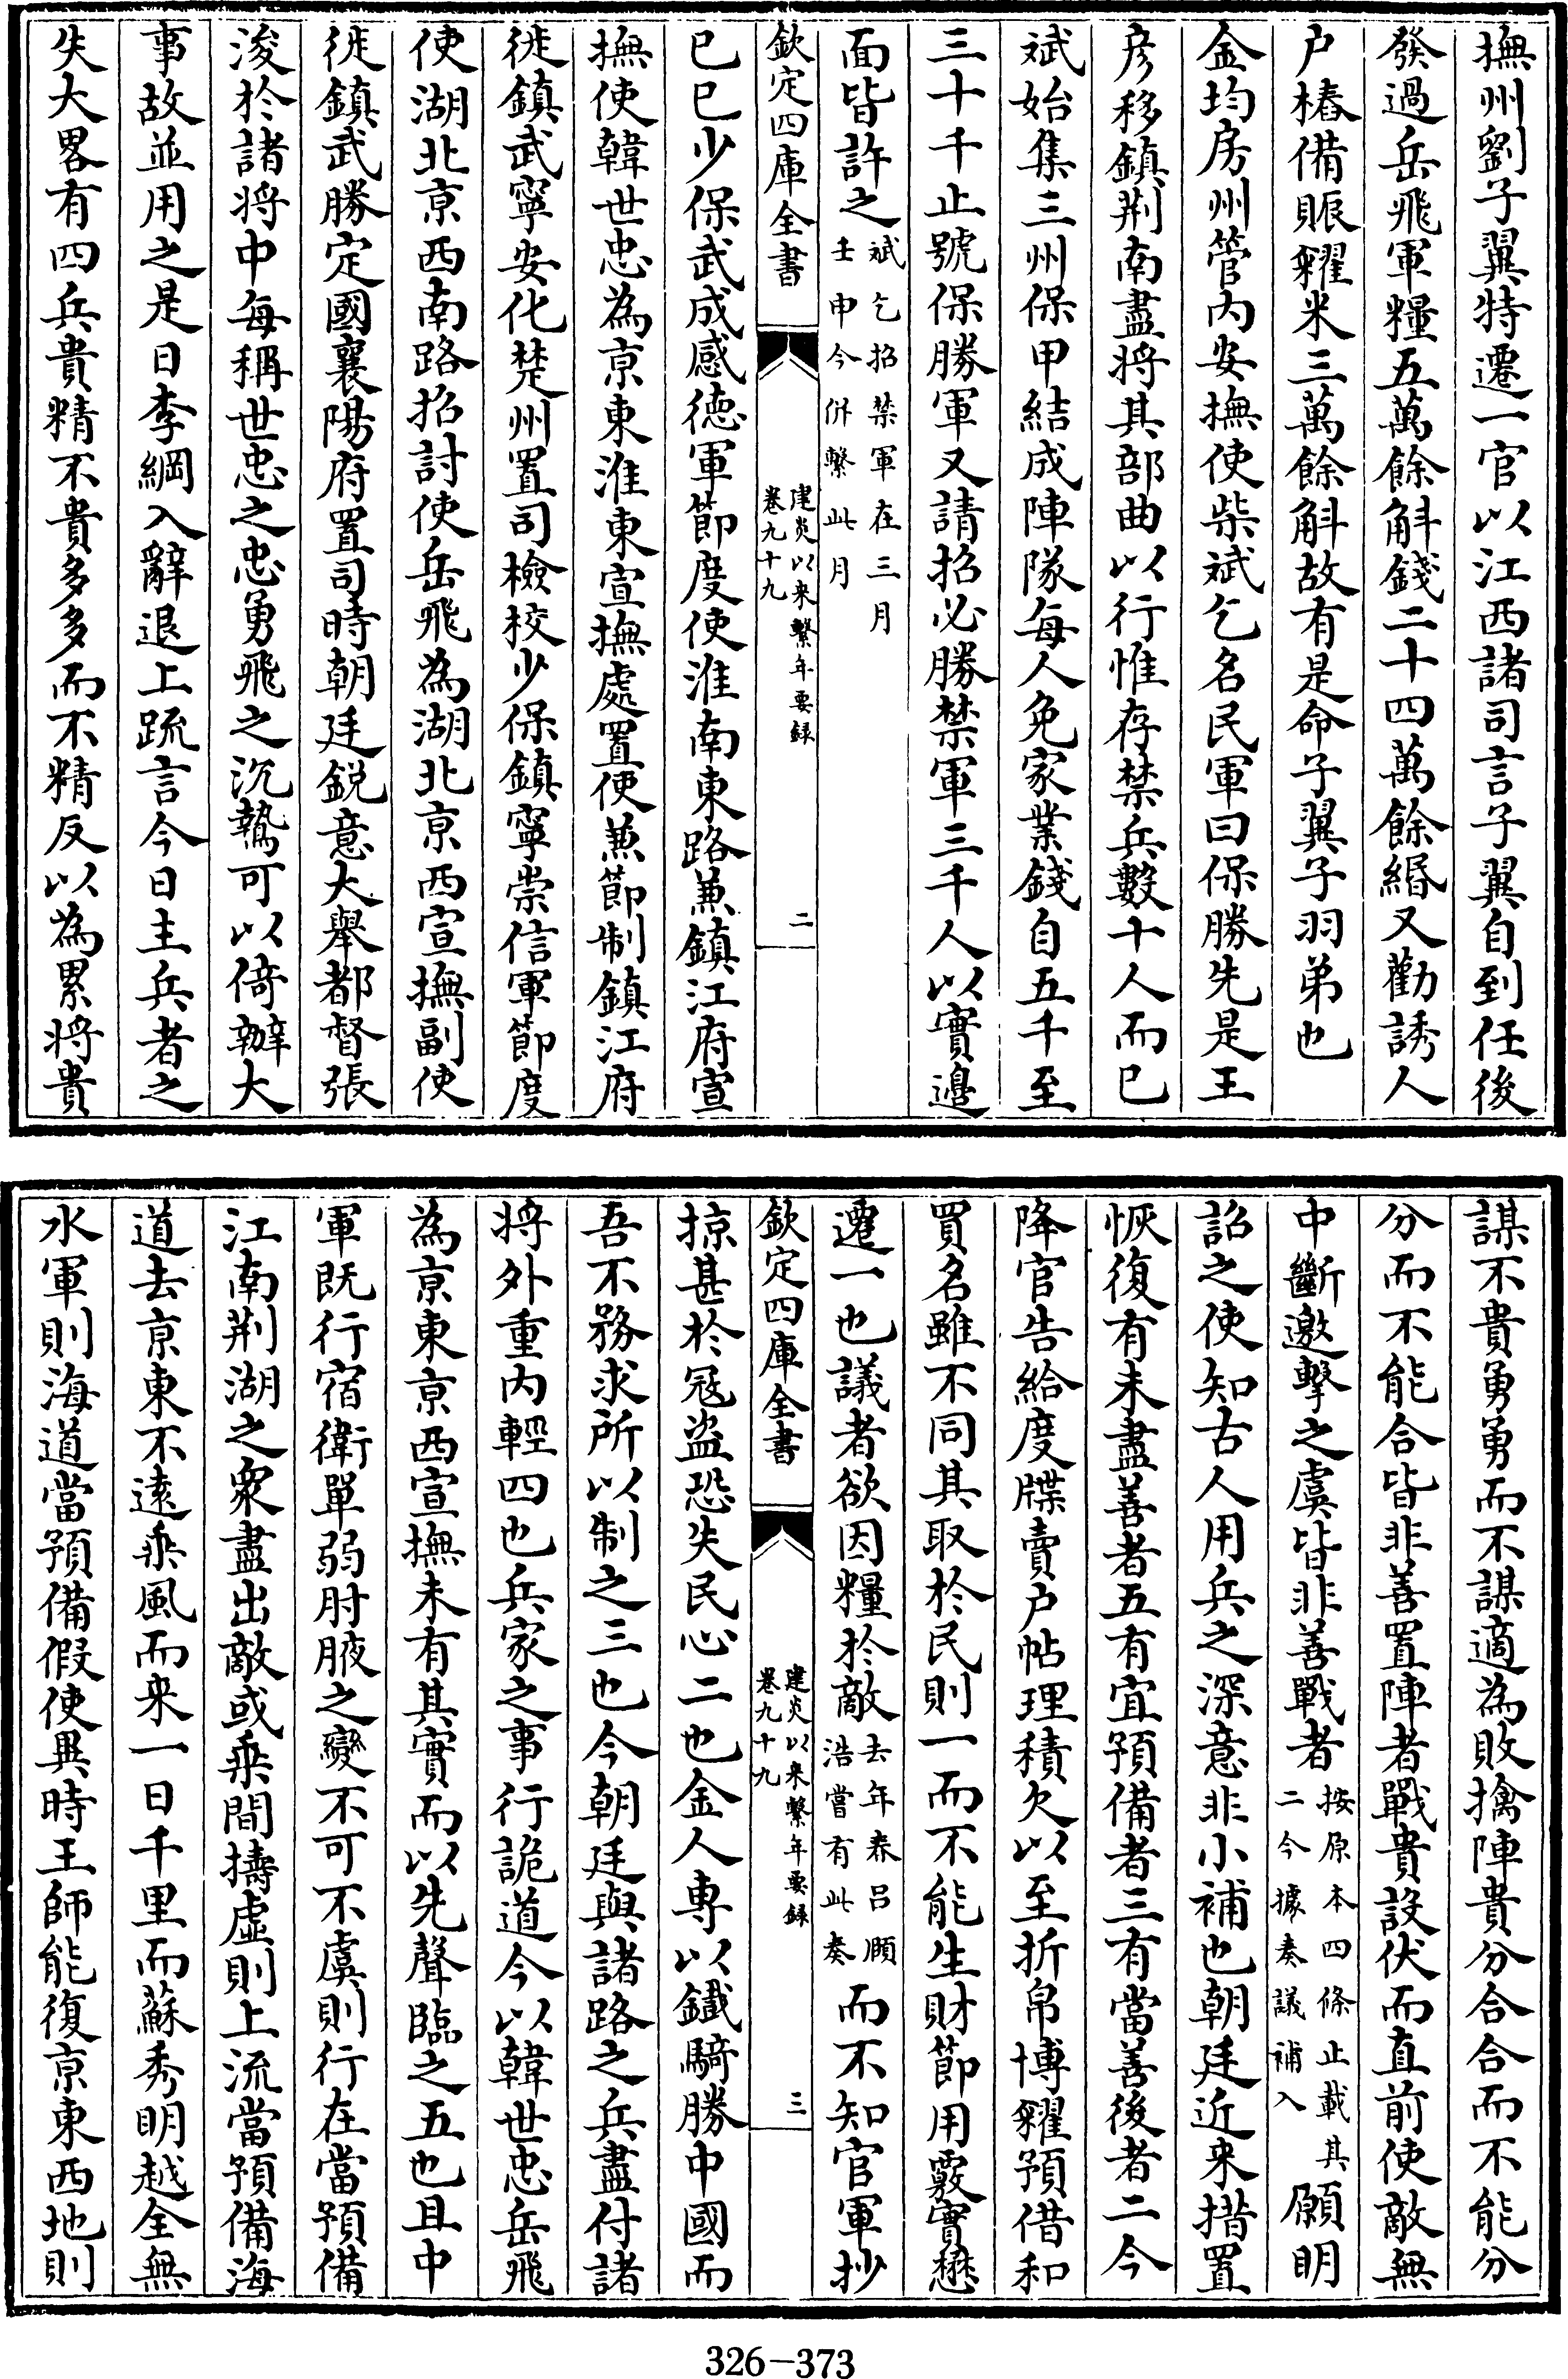 撫州劉子翼特遷一官以江西諸司言子翼自到任後
發過岳飛軍糧五萬餘斛錢二十四萬餘緡又勸誘人
户樁備賑糶米三萬餘斛故有是命子翼子羽弟也
金均房州管内安撫使柴斌乞名民軍曰保勝先是王
彦移鎮荆南盡將其部曲以行惟存禁兵數十人而已
斌始集三州保甲結成陣隊每人免家業錢自五千至
三十千止號保勝軍又請招必勝禁軍三千人以實邊
面皆許之斌乞招禁軍在三月
壬申今併繫此月
欽定四庫全書
建炎以來繫年要録
卷九十九
二
己巳少保武成感德軍節度使淮南東路兼鎮江府宣
撫使韓世忠為京東淮東宣撫處置使兼節制鎮江府
徙鎮武寧安化楚州置司檢校少保鎮寧崇信軍節度
使湖北京西南路招討使岳飛為湖北京西宣撫副使
徙鎮武勝定國襄陽府置司時朝廷鋭意大舉都督張
浚於諸將中每稱世忠之忠勇飛之沉鷙可以倚辦大
事故並用之是日李綱入辭退上疏言今日主兵者之
失大畧有四兵貴精不貴多多而不精反以為累將貴
謀不貴勇勇而不謀適為敗擒陣貴分合合而不能分
分而不能合皆非善置陣者戰貴設伏而直前使敵無
中斷邀擊之虞皆非善戰者按原本四條止載其
二今據奏議補入願明
詔之使知古人用兵之深意非小補也朝廷近来措置
恢復有未盡善者五有宜預備者三有當善後者二今
降官告給度牒賣户帖理積欠以至折帛博糴預借和
買名雖不同其取於民則一而不能生財節用覈實懋
遷一也議者欲因糧於敵去年春吕頤
浩嘗有此奏而不知官軍抄
欽定四庫全書
建炎以來繫年要録
卷九十九
三
掠甚於冦盜恐失民心二也金人專以鐵騎勝中國而
吾不務求所以制之三也今朝廷與諸路之兵盡付諸
將外重内輕四也兵家之事行詭道今以韓世忠岳飛
為京東京西宣撫未有其實而以先聲臨之五也且中
軍既行宿衛單弱肘腋之變不可不虞則行在當預備
江南荆湖之衆盡出敵或乘間擣虛則上流當預備海
道去京東不逺乘風而来一日千里而蘇秀明越全無
水軍則海道當預備假使異時王師能復京東西地則
326-373